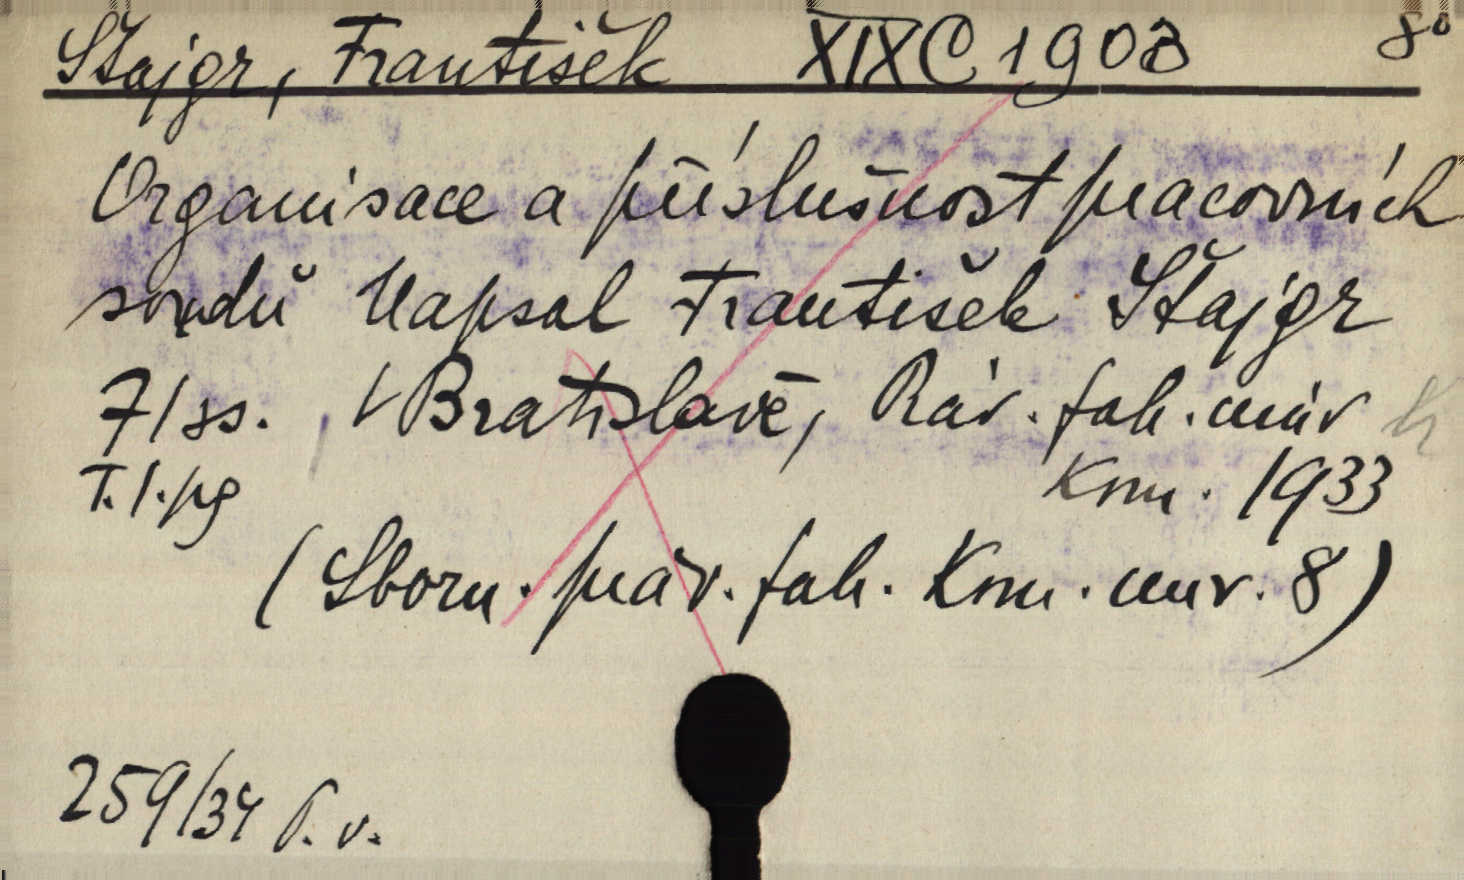 Štajgr, František XIX C 1903 8°
Organisace a příslušnost pracovních
soudů Napsal František Štajgr
71 ss. V Bratislavě, Práv. fak. univ
T. 1. pg Kom. 1933
(Sborn. práv. fak. Kom. univ. 8)
259/34 P. v.